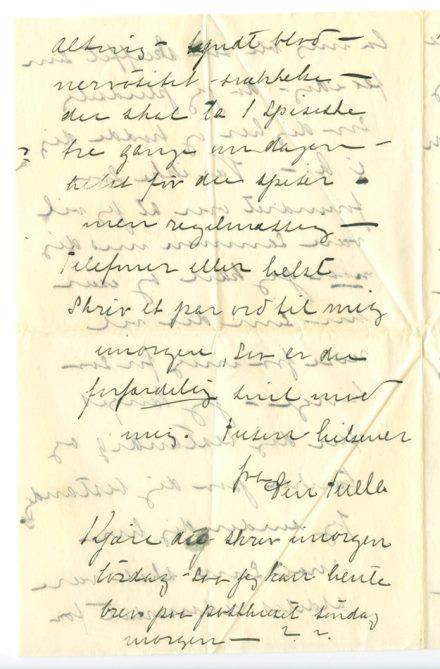 Alting – tyndt blod –
nervøsitet – svækkelse –
du skal ta 1 Spiseske
tre gange om dagen –
helst før du spiser
men regelmæssig –
Telefoner eller helst
Skriv et par ord til mig
imorgen, Saa er du
forfærdelig snil mod
mig. Tusen hilsener
fra Din Tulla
Kjære dig skriv imorgen
lørdag – saa jeg kan hente
brev paa posthuset søndag
morgen – ? ?